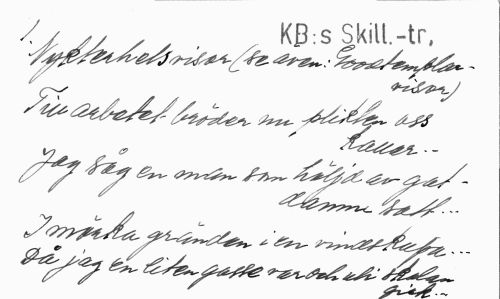 1.
KB:s Skill.-tr,
Nykterhetsvisor (se även: Goodtemplar-
visor)
Till arbetet bröder nu plikten oss
kallar...
Jag såg en man som höljd av gat-
damm satt...
I mörka gränden i en vindskupa...
Då jag en liten gosse var och uti skolan
gick...